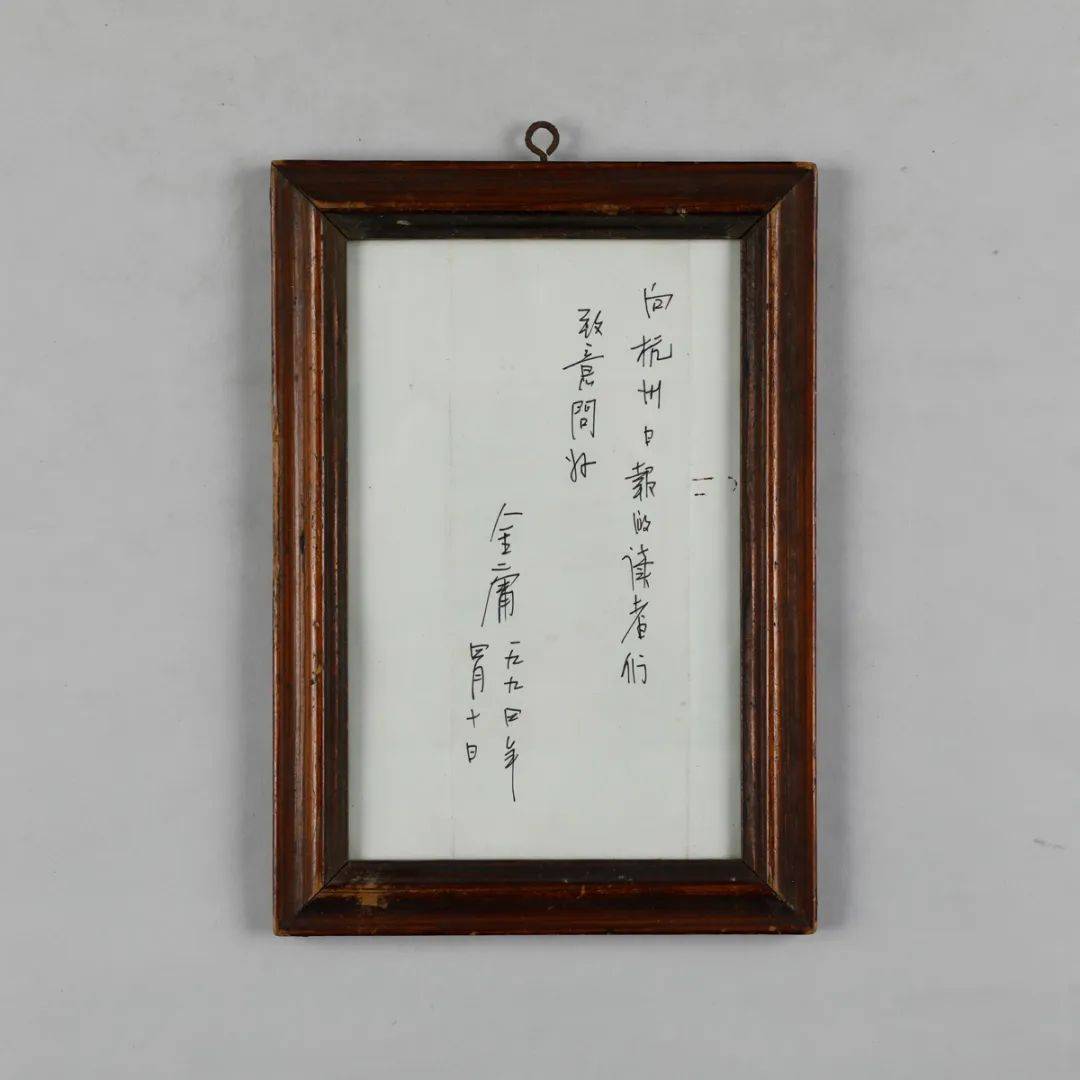 向杭州日報的读者们
致意問好
金庸
一九九四年
四月十日